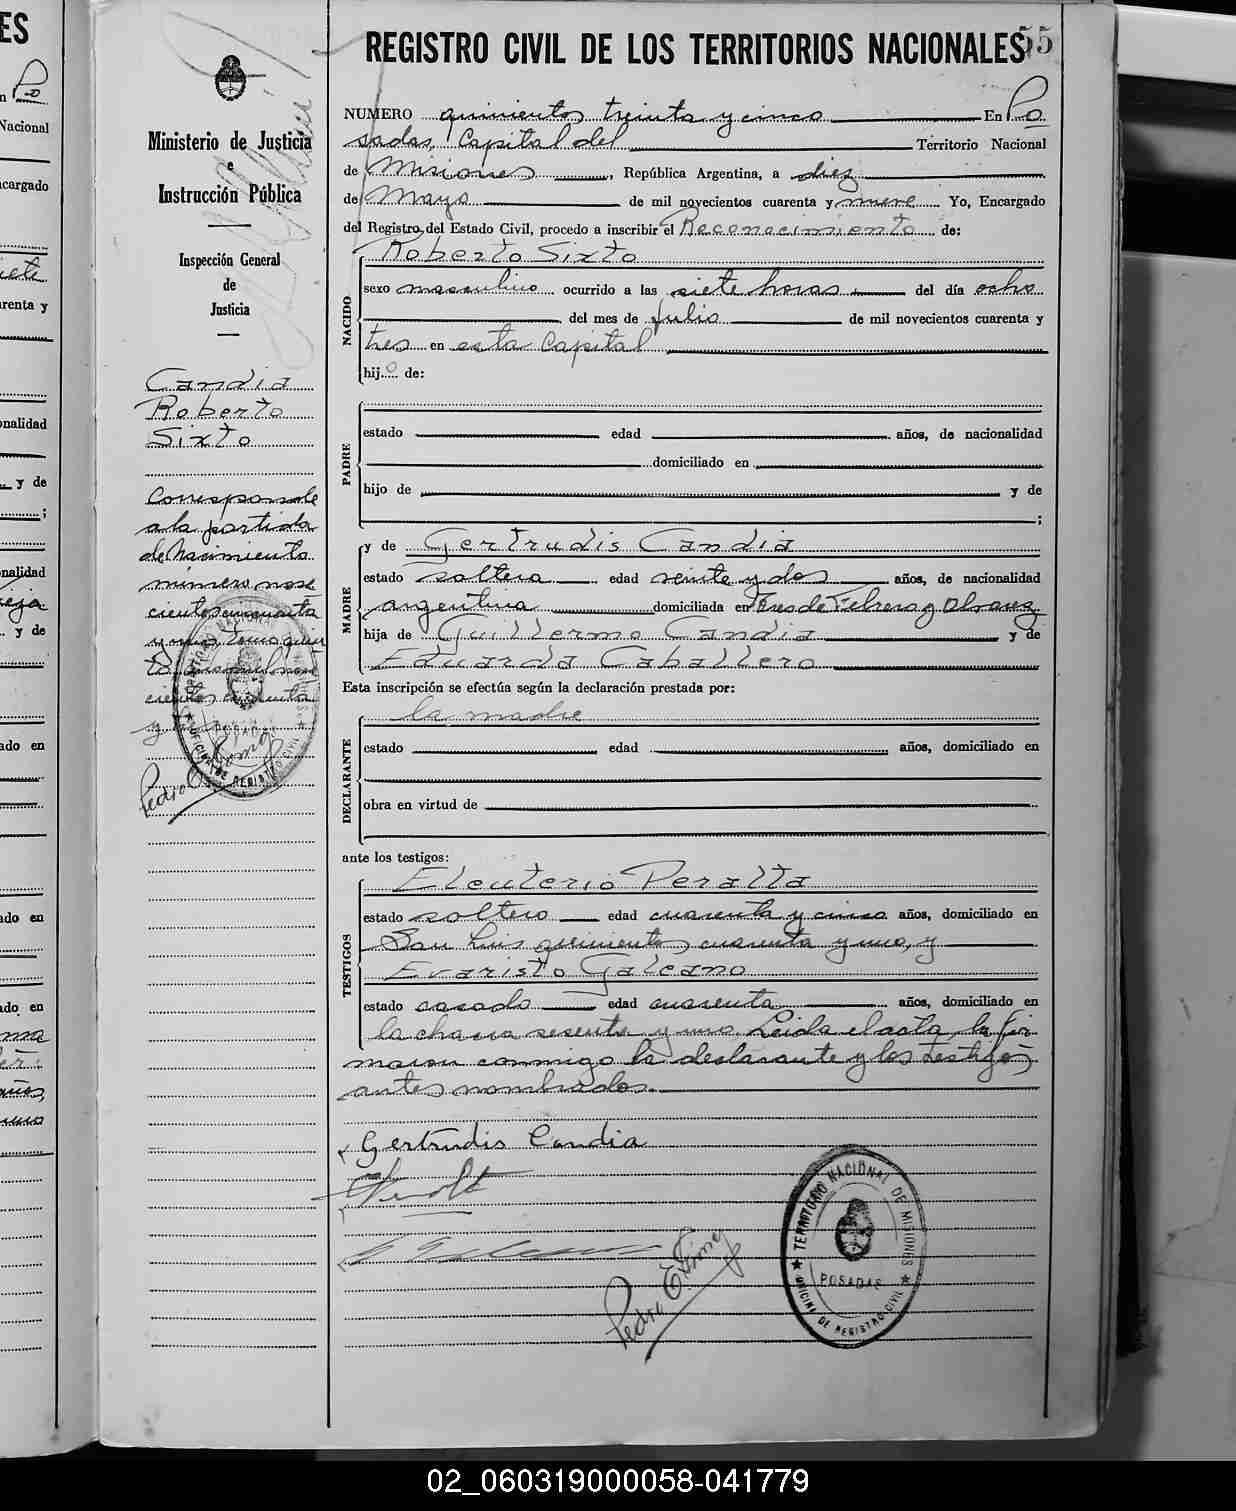 REGISTRO CIVIL DE LOS TERRITORIOS NACIONALES
55
Ministerio de Justicia
e
Instrucción Pública
Inspección General
de
Justicia
Candia
Roberto
Sixto
Corresponde
a la partida
de Nacimiento
número nove
cientos cincuenta
y uno, tomo
cientos cuarenta
y
Pedro E.
NUMERO quinientos treinta y cinco En Po
sadas, Capital del Territorio Nacional
de Misiones, República Argentina, a diez
de Mayo de mil novecientos cuarenta y nueve. Yo, Encargado
del Registro del Estado Civil, procedo a inscribir el Reconocimiento de:
NACIDO
Roberto Sixto
sexo masculino ocurrido a las siete horas del día ocho
del mes de Julio de mil novecientos cuarenta y
tres en esta Capital
hijo de:
PADRE
estado edad años, de nacionalidad
domiciliado en
hijo de y de
;
MADRE
y de Gertrudis Candia
estado soltera edad veinte y dos años, de nacionalidad
argentina domiciliada en Tres de Febrero y
hija de Guillermo Candia y de
Eduarda Caballero
Esta inscripción se efectúa según la declaración prestada por:
DECLARANTE
la madre
estado edad años, domiciliado en
obra en virtud de
ante los testigos:
TESTIGOS
Eleuterio Peralta
estado soltero edad cuarenta y cinco años, domiciliado en
San Luis quinientos cuarenta y uno, y
Evaristo Galeano
estado casado edad cuarenta años, domiciliado en
la chacra sesenta y uno. Leida el acta, la fir
maron conmigo la declarante y los testigos
antes nombrados.
Gertrudis Candia
Pedro E.
TERRITORIO NACIONAL DE MISIONES
POSADAS
OFICINA DE REGISTRO CIVIL
02_060319000058-041779